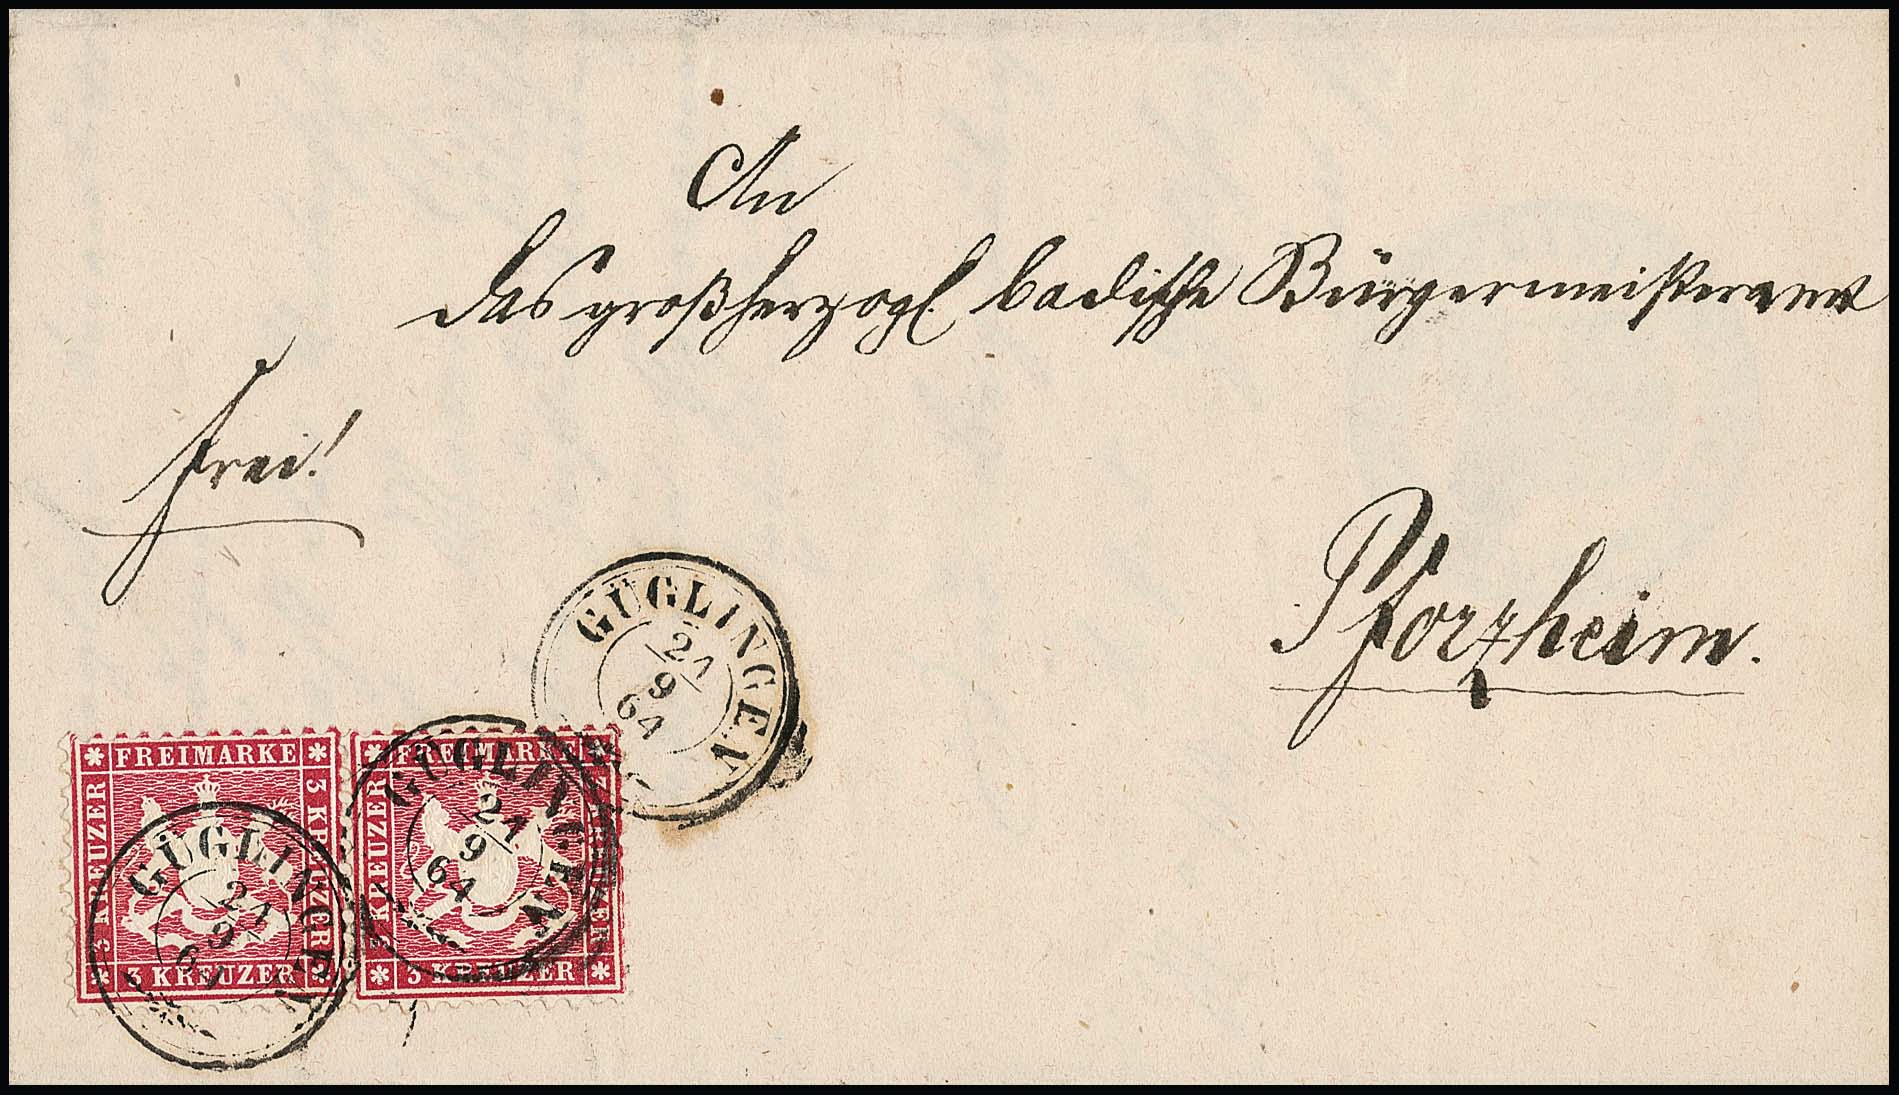 An
das großherzogl. badische Bürgermeisteramt
Frei!
Pforzheim.
GÜGLINGEN
21
9
64
FREIMARKE
3 KREUZER
3 KREUZER
3 KREUZER
GÜGLINGEN
21
9
64
FREIMARKE
3 KREUZER
3 KREUZER
3 KREUZER
GÜGLINGEN
21
9
64